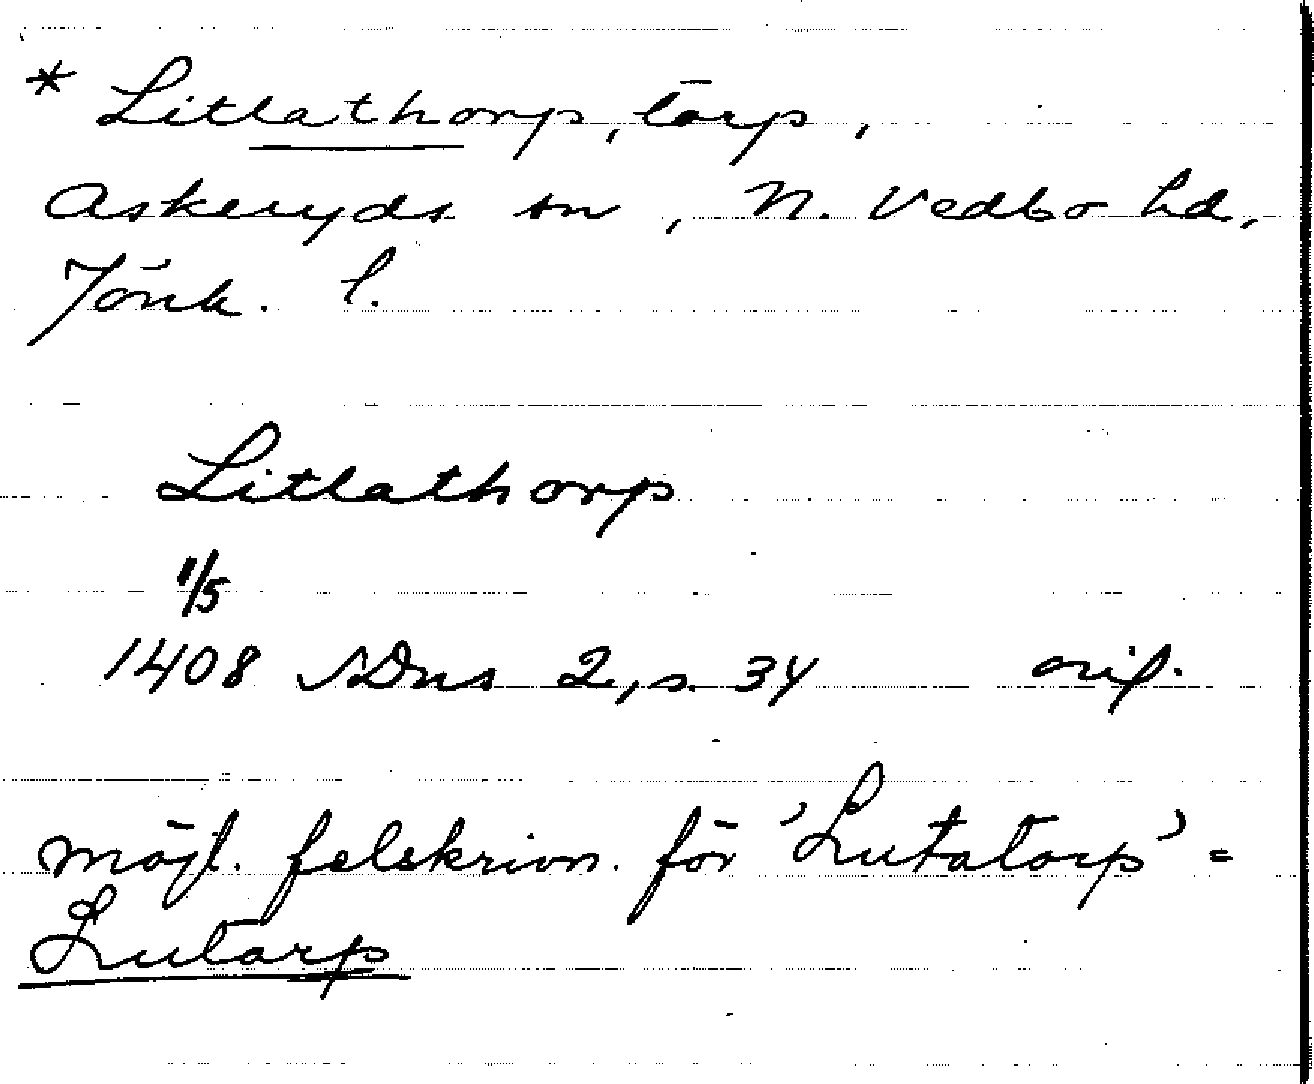 * Litlathorp, torp,
Askeryds sn, N. Vedbo hd,
Jönk. l.
Litlathorp
1/5
1408 SDns 2, s. 34 orig.
möjl. felskrivn. för 'Lutatorp' =
Lutarp